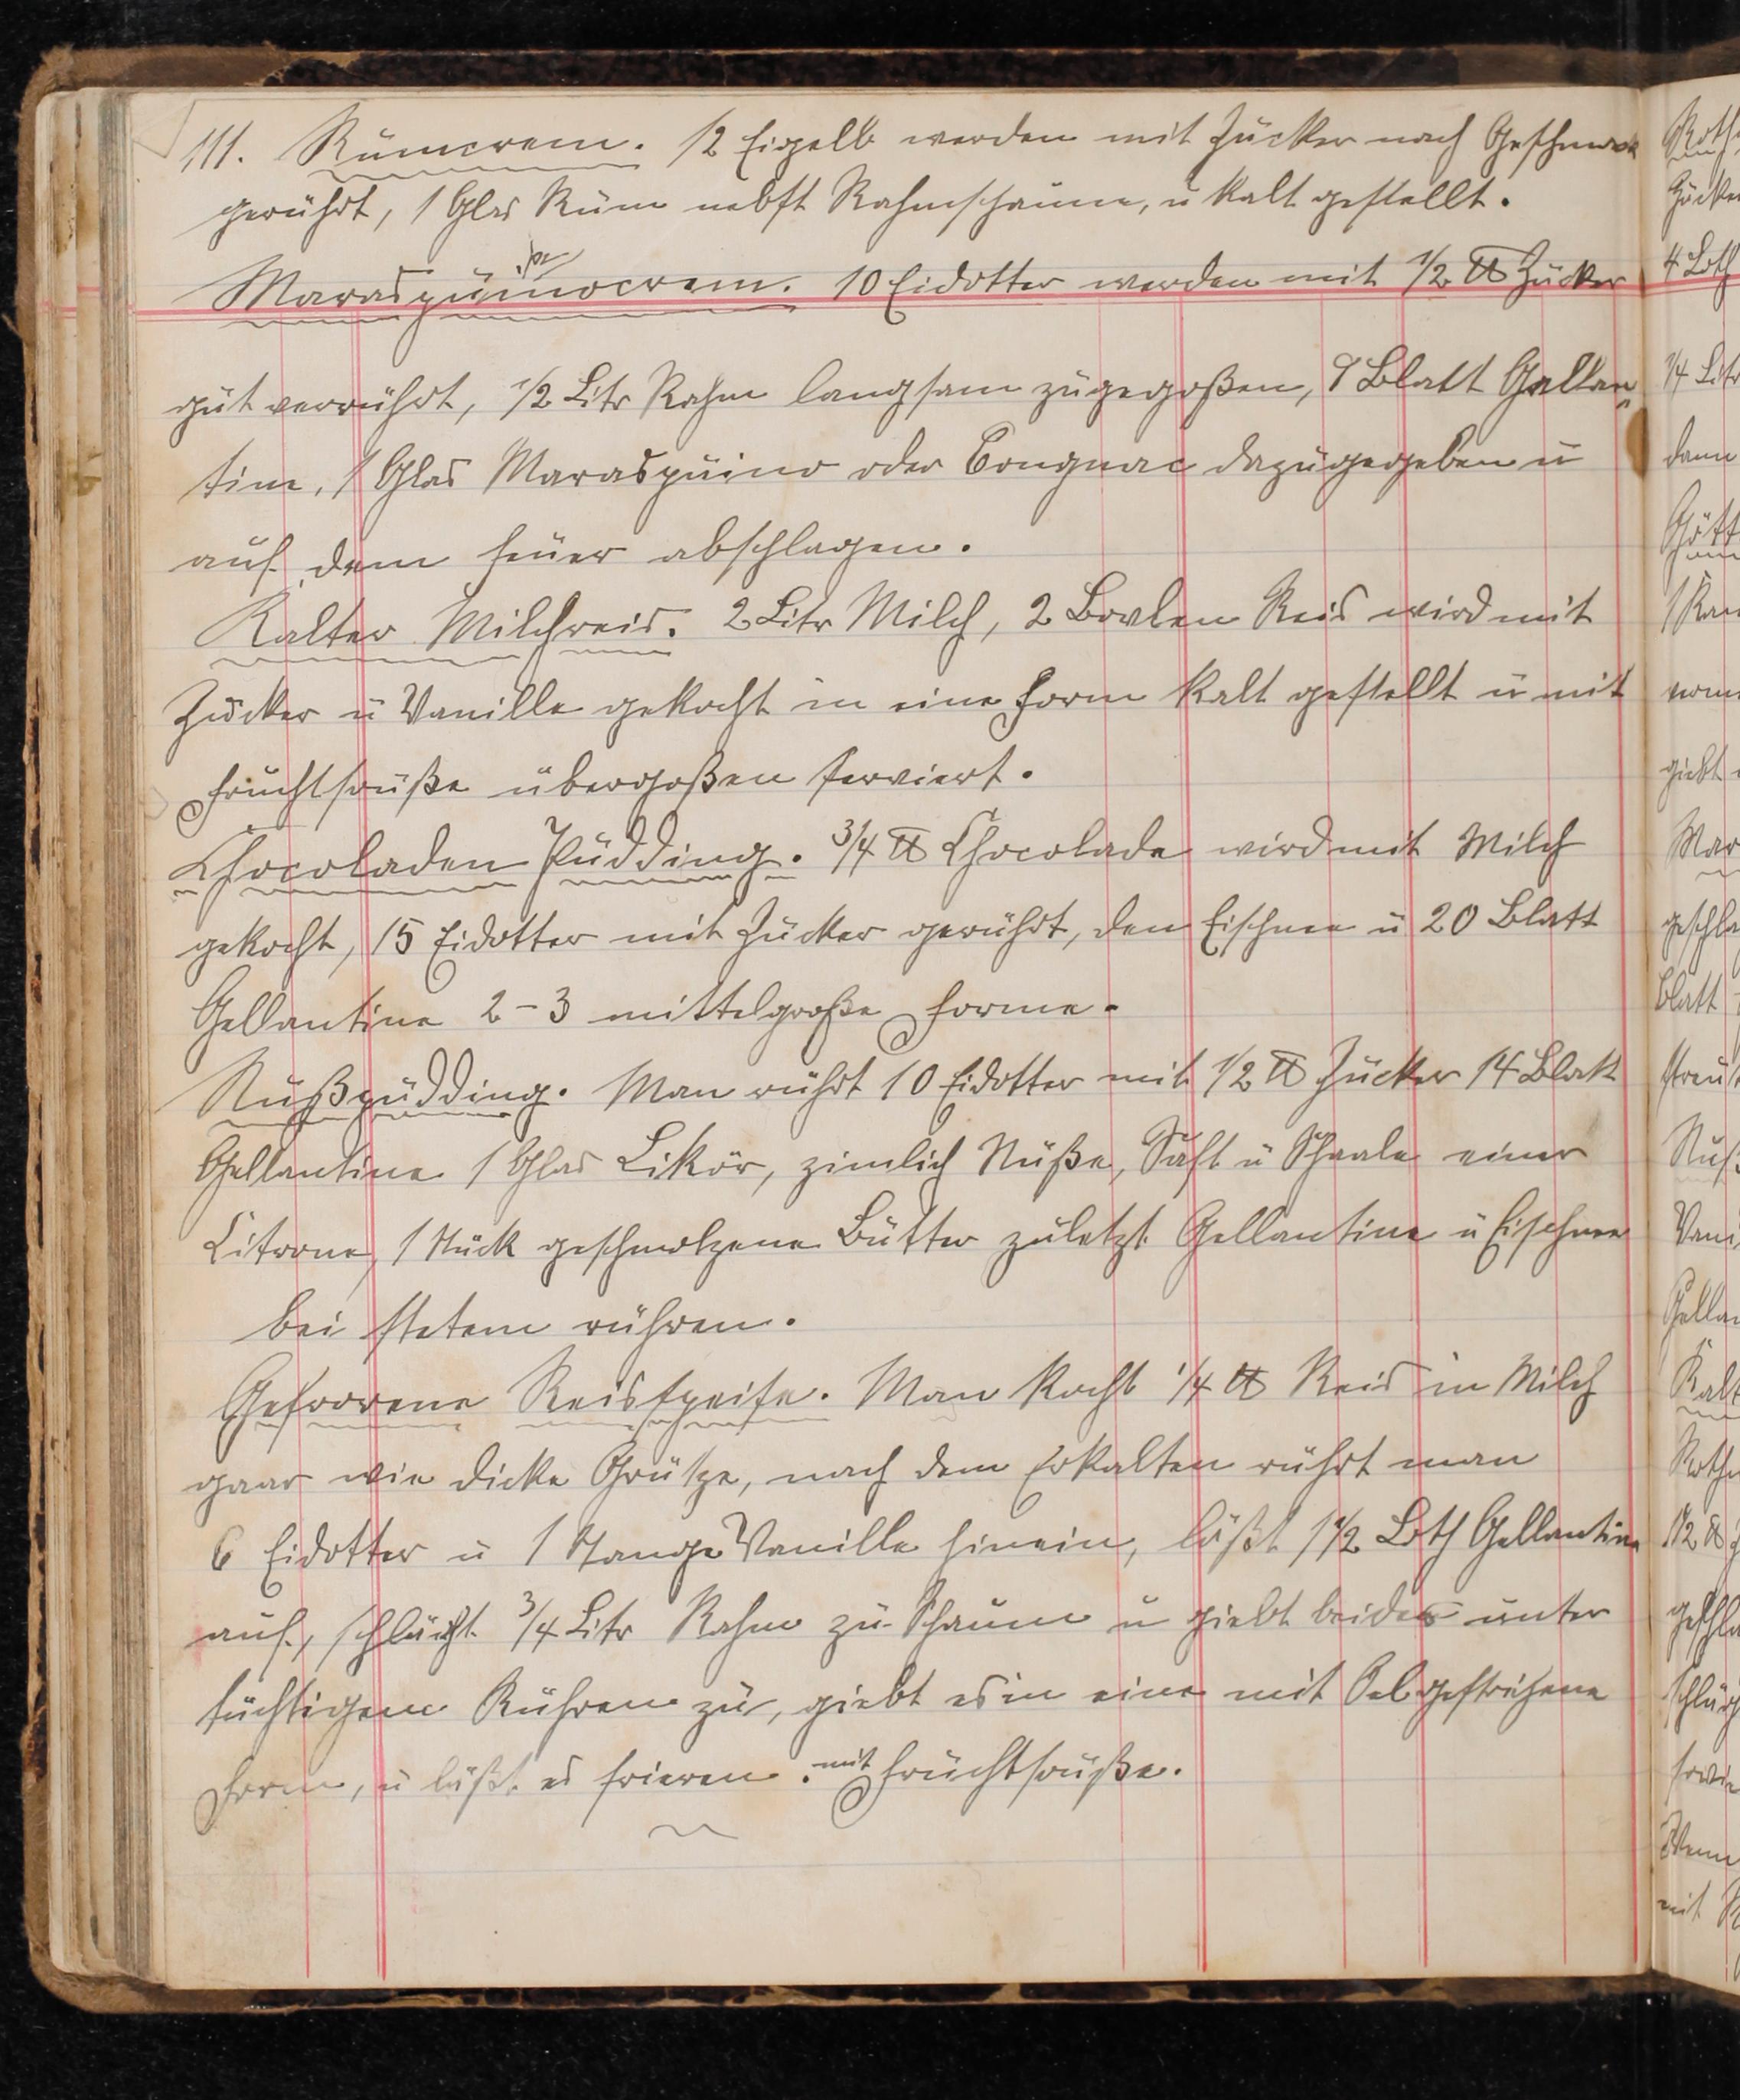 111. Rumcrem. 12 Eigelb werden mit Zucker nach Geschmack
gerührt, 1 Glas Rum nebst Rahmschaum, u kalt gestellt.
Maraspuinocrem. 10 Eidotter werden mit 1/2 ℔ Zucker
gut verrührt, 1/2 Litr Rahm langsam zugegoßen, 9 Blatt Gellan
tine, 1 Glas Maraspuino oder Congnac dazugegeben u
auf dem Feuer abschlagen.
Kalter Milchreis. 2 Litr Milch, 2 Bovlen Reis wird mit
Zucker u Vanille gekocht in eine Form kalt gestellt u mit
Fruchtsauße übergoßen serviert.
Chocoladen Pudding. 3/4 ℔ Chocolade wird mit Milch
gekocht, 15 Eidotter mit Zucker gerührt, den Eischnee u 20 Blatt
Gellantine 2-3 mittelgroße Forme.
Nußpudding. Man rührt 10 Eidotter mit 1/2 ℔ Zucker 14 Blatt
Gellantine 1 Glas Likör, zimlich Nüße, Saft u Schaale einer
Citrone, 1 Stück geschmolzene Butter zuletzt Gellantine u Eischnee
bei stetem rühren.
Gefrorene Reisspeise. Man kocht 1/4 ℔ Reis in Milch
gaar wie dicke Grütze, nach dem Erkalten rührt man
6 Eidotter u 1 Stange Vanille hinein, läßt 1 1/2 Loth Gellantine
auf, schlägt 3/4 Litr Rahm zu Schaum u giebt beides unter
tüchtigem Rühren zu, giebt es in eine mit Oel gestrichene
Form, u läßt es frieren. mit Fruchtsauße.